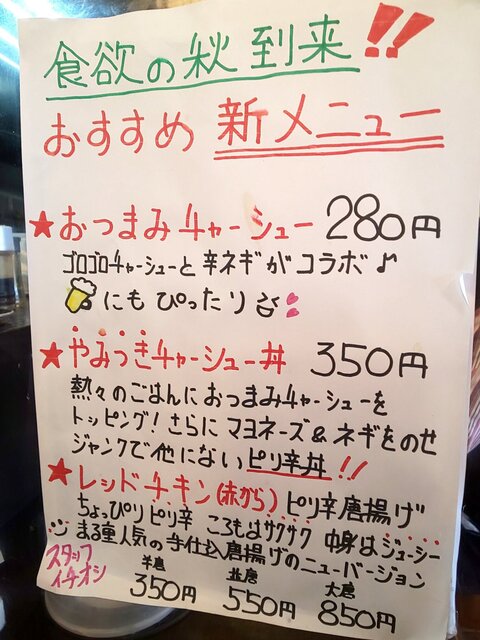 食欲の秋 到来!!
おすすめ 新メニュー
★おつまみチャーシュー 280円
ゴロゴロチャーシューと辛ネギがコラボ♪
にもぴったり
★やみつきチャーシュー丼 350円
熱々のごはんにおつまみチャーシューを
トッピング!さらにマヨネーズ&ネギをのせ
ジャンクで他にないピリ辛丼!!
★レッドチキン(赤から) ピリ辛唐揚げ
ちょっぴりピリ辛 ころもはサクサク 中身はジューシー
まる重人気の手仕込唐揚げのニューバージョン
スタッフ
イチオシ
半唐 並唐 大唐
350円 550円 850円